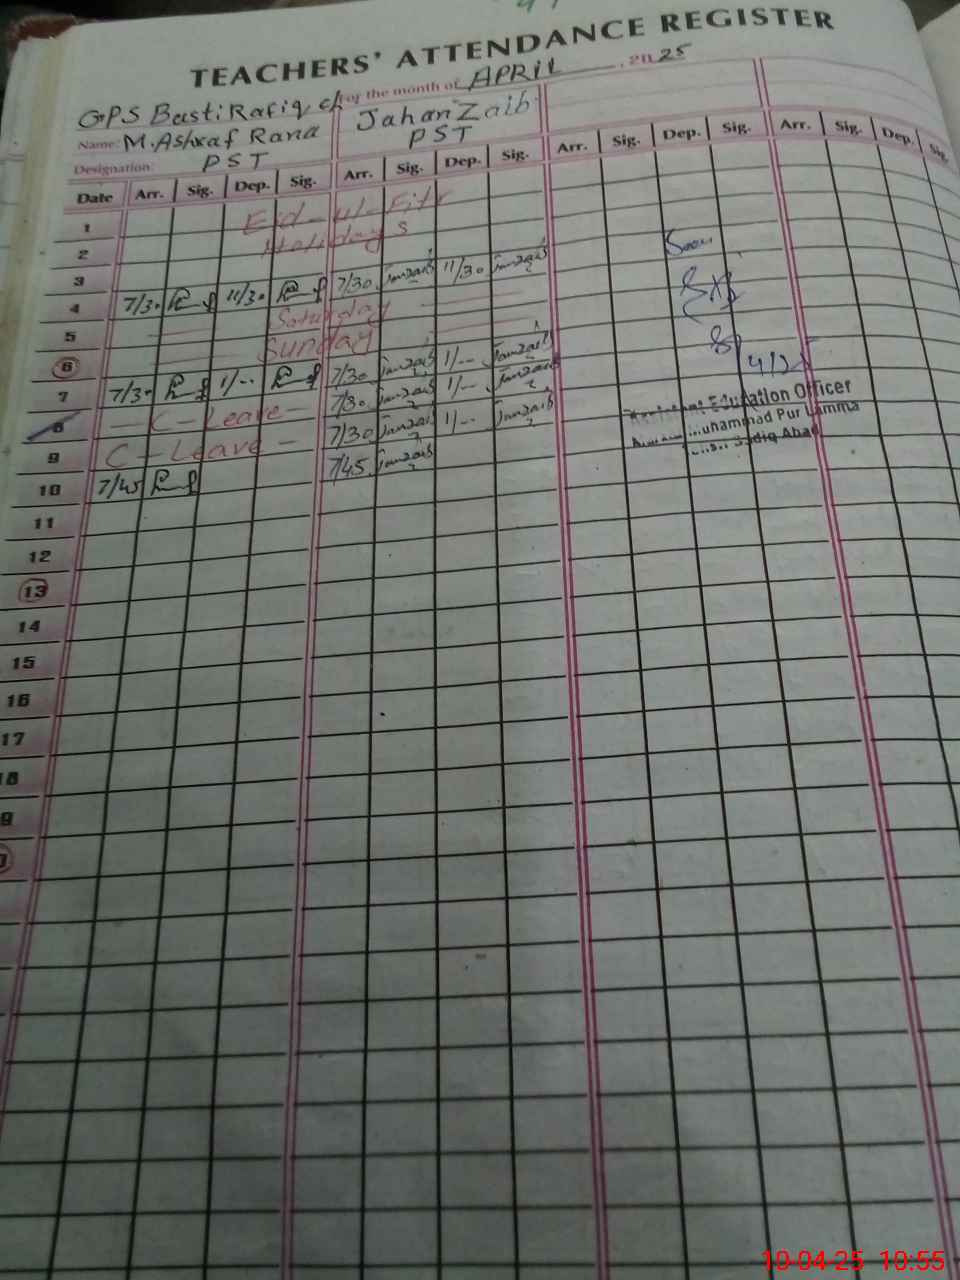 TEACHERS' ATTENDANCE REGISTER
GPS Basti Rafiq ch For the month of APRIL, 2025
Name: M.Ashraf Rana JahanZaib
Designation: PST PST
Date Arr. Sig. Dep. Sig. Arr. Sig. Dep. Sig. Arr. Sig. Dep. Sig. Arr. Sig. Dep. Sig.
1 Eid-ul-Fitr
2 Holidays
3
4 7/30 11/30 7/30 Janzaib 11/30 Janzaib
5 Saturday
6 Sunday
7 7/30 1/-- 7/30 Janzaib 1/-- Janzaib
8 - C - Leave - 7/30 Janzaib 1/-- Janzaib
9 C - Leave - 7/30 Janzaib 1/-- Janzaib
10 7/45 7/45 Janzaib
11
12
13
14
15
16
17
18
9
Assistant Education Officer
uhammad Pur Lamma
Sadiq Abad
10-04-25 10:55